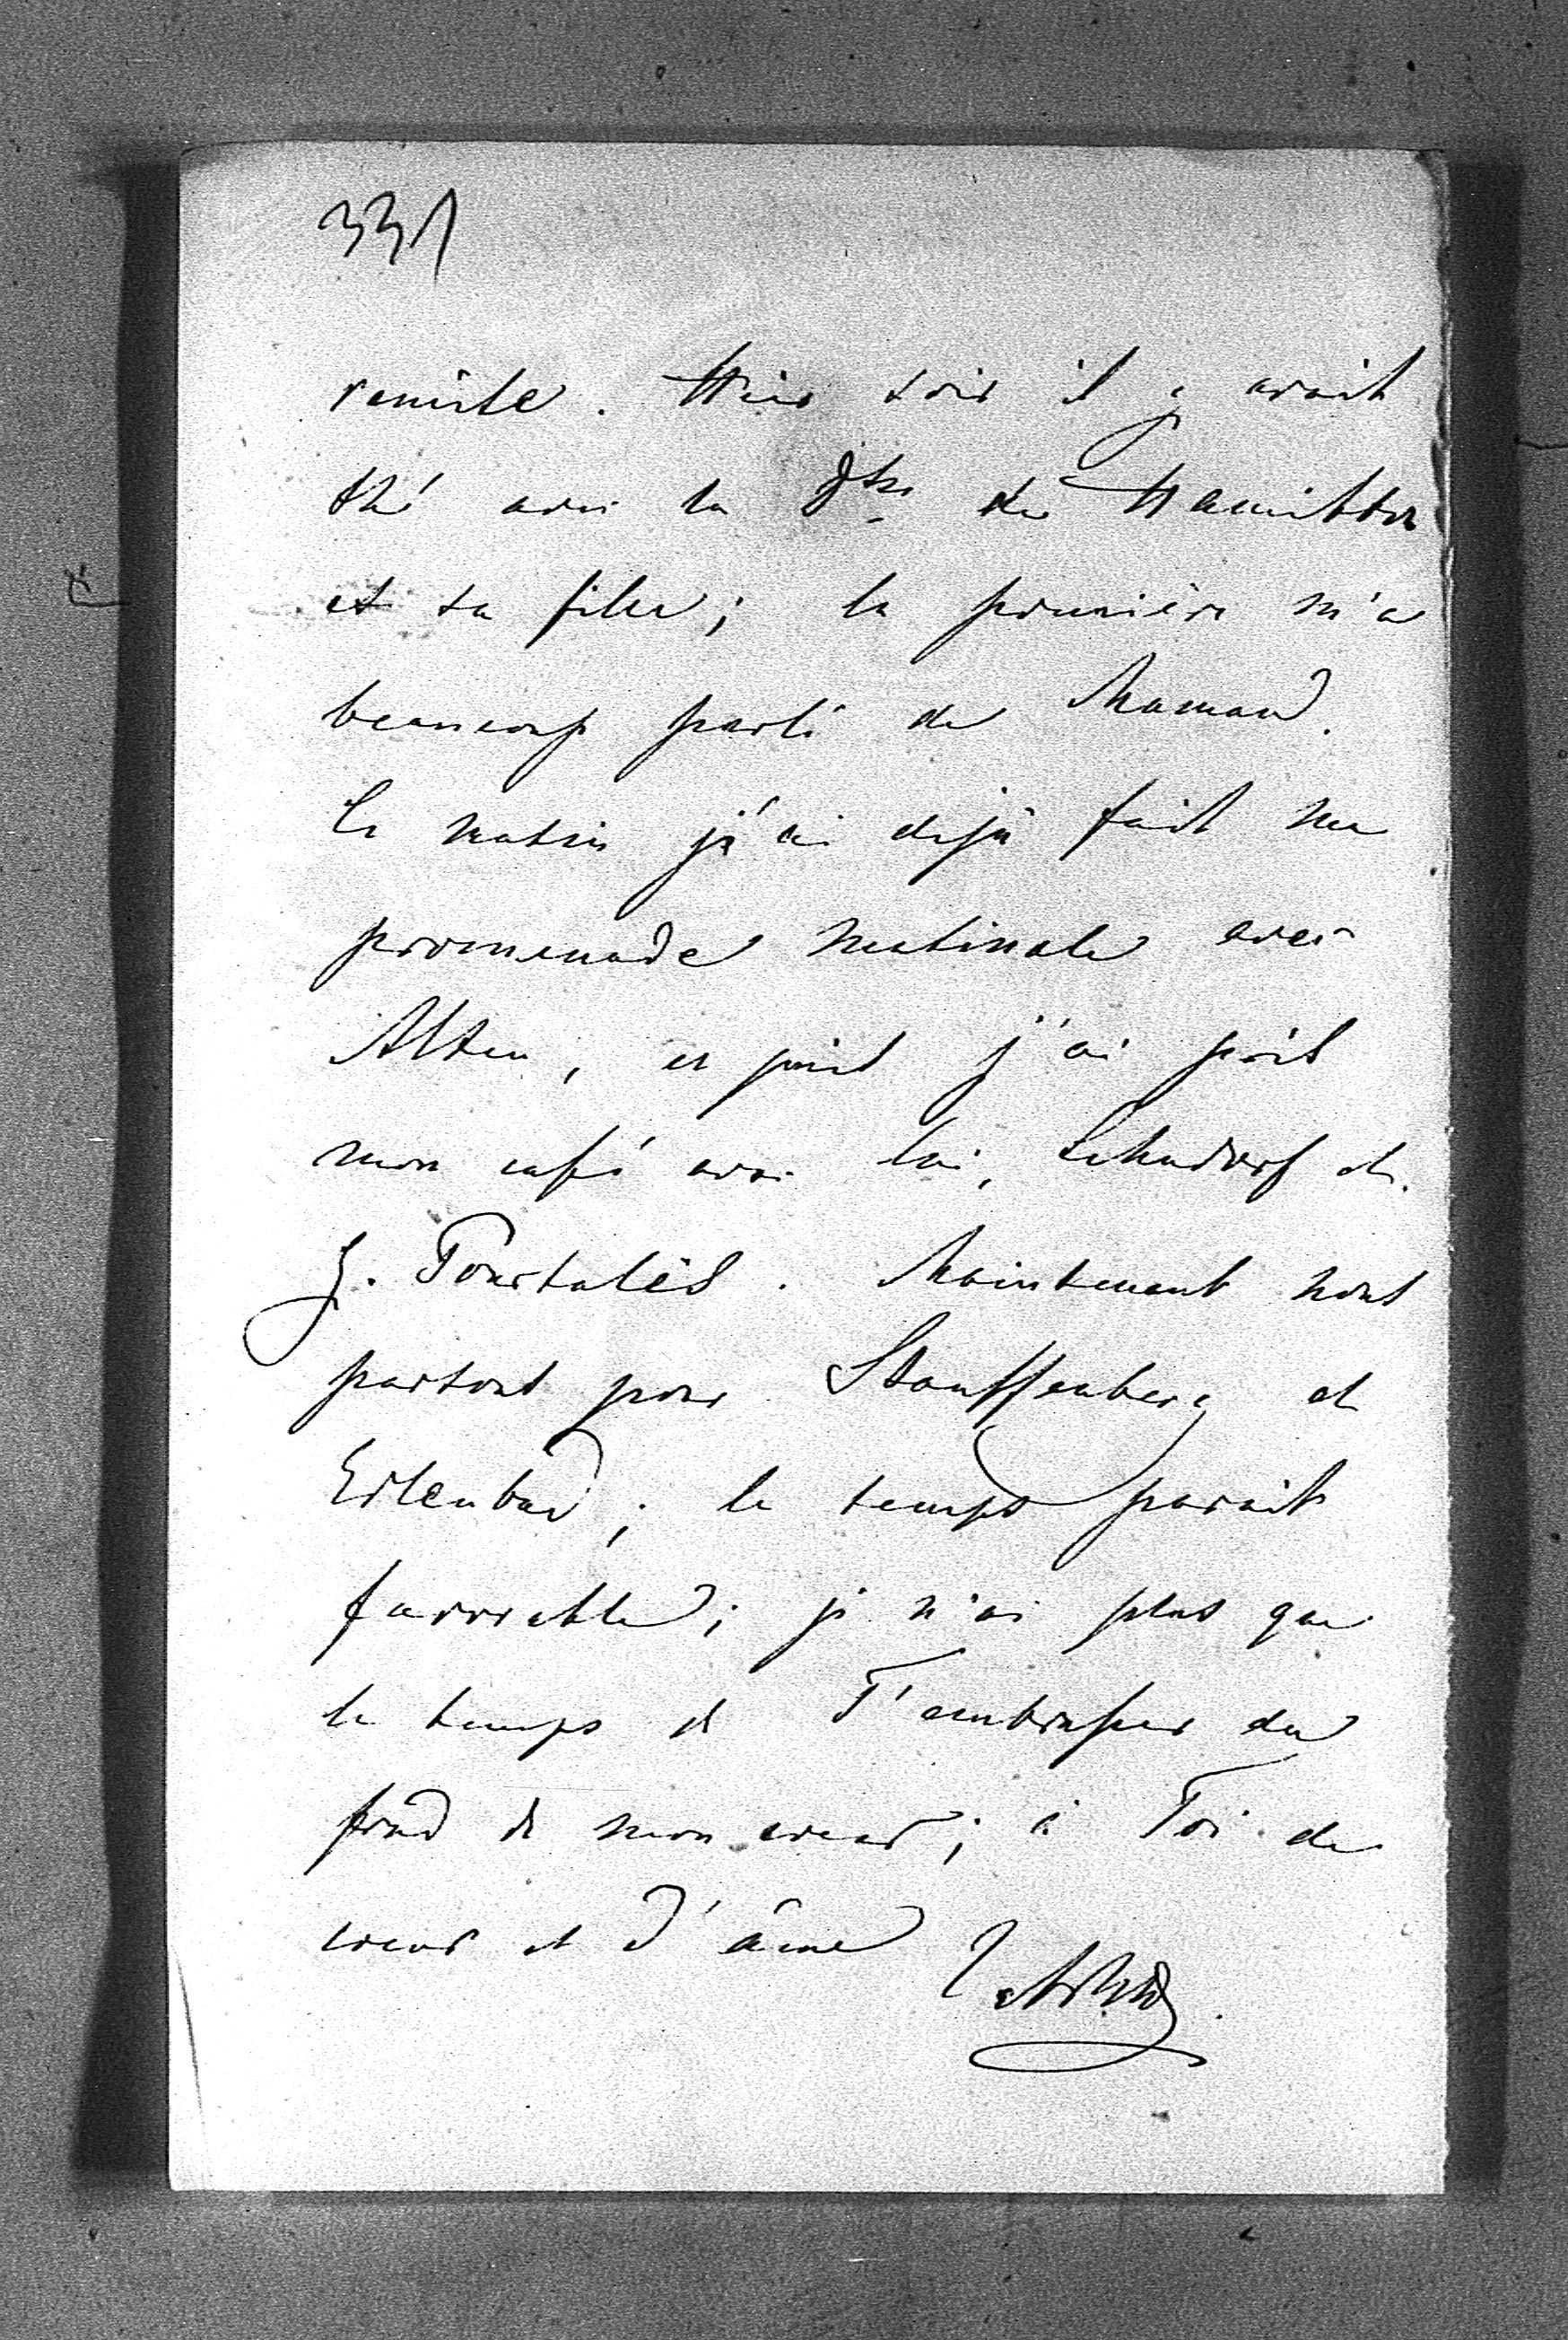 331
remise. Hier soir il y avait
thé avec la Dsse de Hamilton
et sa fille; la première m'a
beaucoup parlé de Maman.
Ce matin j'ai dejà fait ma
promenade matinale avec
Alten, et puis j'ai pris
mon café avec lui, Lehndorf et
J. Pourtalès. Maintenant nous
partons pour Stauffenberg et
Erlenbad; le temps parait
favorable; je n'ai plus que
le temps de T'embrasser du
fond de mon coeur; à Toi de
coeur et d'âme